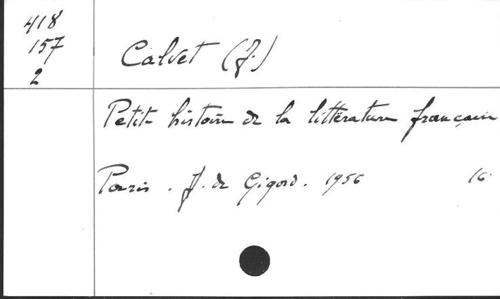 418
157
2
Calvet (J.)
Petite histoire de la littérature française
Paris. J. de Gigord. 1956 16